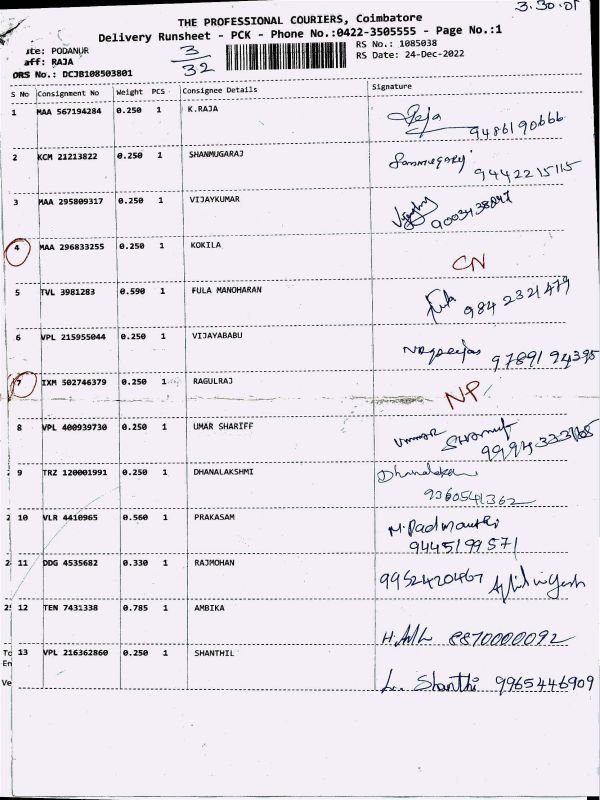 3.30.01
THE PROFESSIONAL COURIERS, Coimbatore
Delivery Runsheet - PCK - Phone No.:0422-3505555 - Page No.:1
ite: PODANUR
3/32
RS No.: 1085038
aff: RAJA
RS Date: 24-Dec-2022
DRS No.: DCJB108503801
S No Consignment No Weight PCS Consignee Details Signature
1 MAA 567194284 0.250 1 K.RAJA Raja 9486190666
2 KCM 21213822 0.250 1 SHANMUGARAJ 9442215115
3 MAA 295809317 0.250 1 VIJAYKUMAR
4 MAA 296833255 0.250 1 KOKILA CN
5 TVL 3981283 0.590 1 FULA MANOHARAN Fula 9842321479
6 VPL 215955044 0.250 1 VIJAYABABU 9789194395
7 IXM 502746379 0.250 1 RAGULRAJ NP
8 VPL 400939730 0.250 1 UMAR SHARIFF
9 TRZ 120001991 0.250 1 DHANALAKSHMI
9360541362
2 10 VLR 4410965 0.560 1 PRAKASAM
9445199571
2 11 DDG 4535682 0.330 1 RAJMOHAN 9952420467
25 12 TEN 7431338 0.785 1 AMBIKA 8870000092
To 13 VPL 216362860 0.250 1 SHANTHIL
En
Ve
Shanthi 9965446909